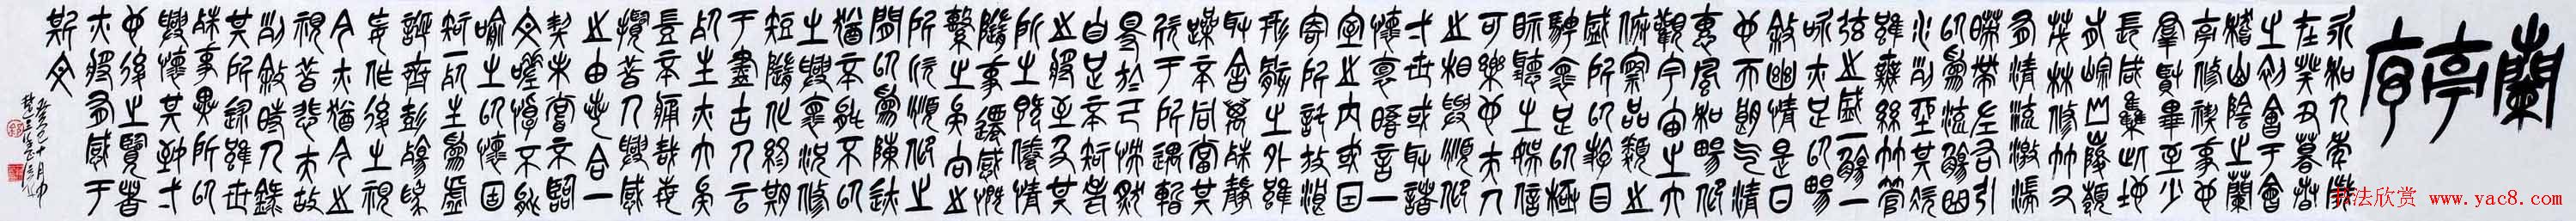 蘭亭序
永和九年歲
在癸丑暮春
之初會于會
稽山陰之蘭
亭修禊事也
群賢畢至少
長咸集此地
有崇山峻領
茂林修竹又
有清流激湍
暎帶左右引
以為流觴曲
水列坐其次
雖無絲竹管
弦之盛一觴一
詠亦足以暢
敘幽情是日
也天朗氣清
惠風和暢仰
觀宇宙之大
俯察品類之
盛所以遊目
騁懷足以極
視聽之娛信
可樂也夫人
之相與俯仰
一世或取諸
懷抱晤言一
室之內或因
寄所託放浪
形骸之外雖
取舍萬殊靜
躁不同當其
欣于所遇暫
得於己快然
自足不知老
之將至及其
所之既倦情
隨事遷感慨
繫之矣向之
所欣俛仰之
間以為陳跡
猶不能不以
之興懷況修
短隨化終期
于盡古人云
死生亦大矣
豈不痛哉每
攬昔人興感
之由若合一
契未嘗不臨
文嗟悼不能
喻之以懷固
知一死生為虛
誕齊彭殤為
妄作後之視
今亦猶今之
視昔悲夫故
列敘時人錄
其所述雖世
殊事異所以
興懷其致一
也後之覽者
亦將有感于
斯文
书法欣赏 www.yac8.com